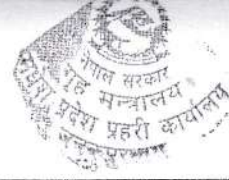 नेपाल सरकार
गृह मन्त्रालय
प्रदेश प्रहरी कार्यालय